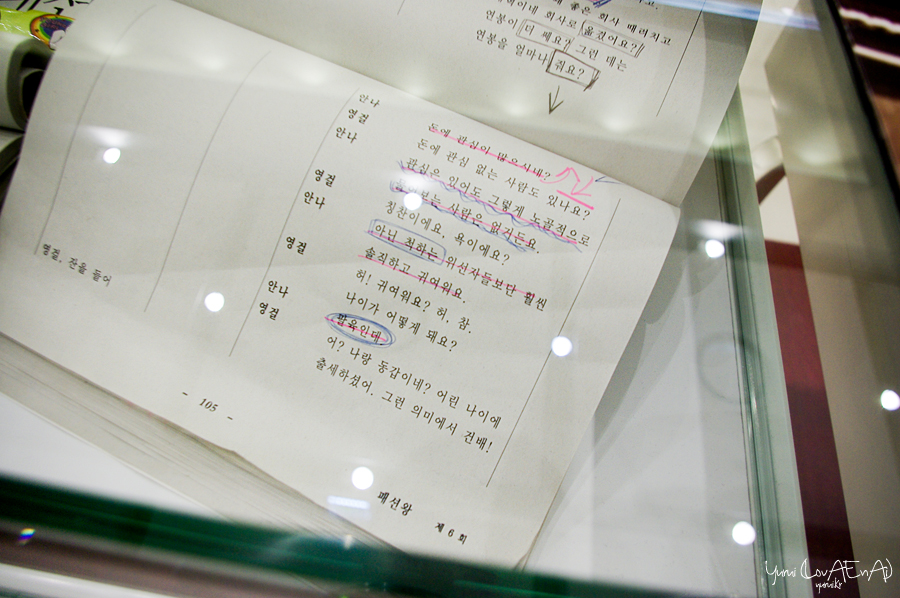 좋은 회사 때려치고
회사로 옮겼어요?
연봉이 더 쎄요? 그런 데는
연봉을 얼마나 줘요?
안나 돈에 관심이 많으시네?
영걸 돈에 관심 없는 사람도 있나요?
안나 관심은 있어도 그렇게 노골적으로
사람은 없거든요.
영걸 칭찬이에요, 욕이에요?
안나 아닌 척하는 위선자들보단 훨씬
솔직하고 귀여워요.
영걸 허! 귀여워요? 허, 참.
나이가 어떻게 돼요?
안나 팔육인데.
영걸 어? 나랑 동갑이네? 어린 나이에
출세하셨어. 그런 의미에서 건배!
영걸, 잔을 들어
- 105 -
패션왕
제 6 회
Yumi (LovAEnAi)
yumiko